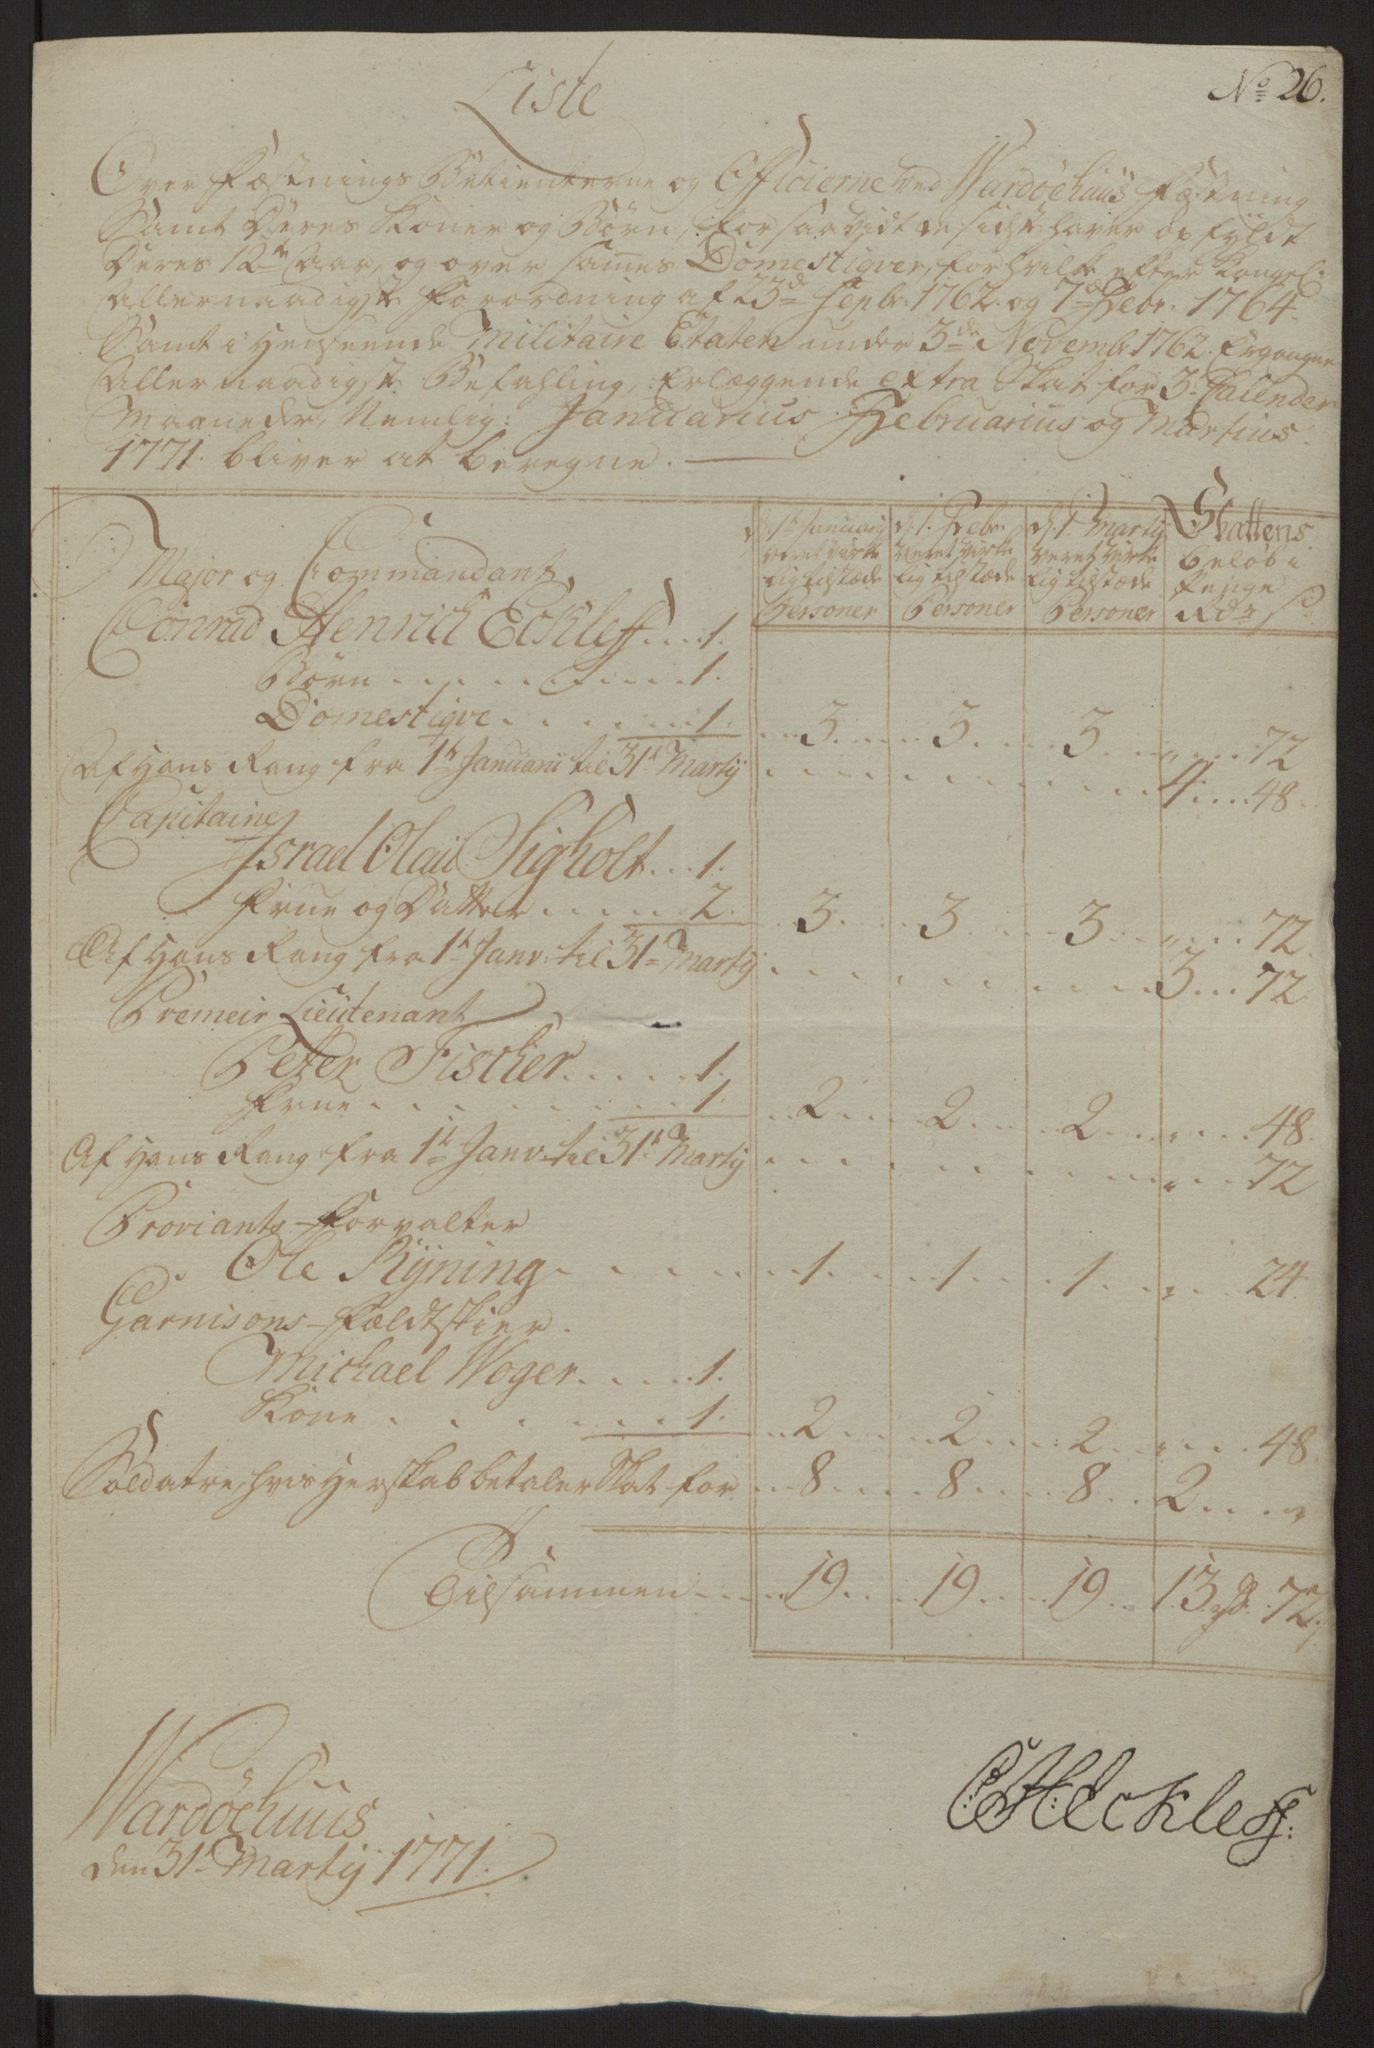 No 26.
Liste
Over Fæstnings Betienterne og Officierne ved Wardøehuus Fæstning
Samt Deres Koner og Børn, forsaavidt de icke haver opfyldt
Deres 12te Aar, og over sammes Domestiqver, for hvilke efter Kongel:
Allernaadigste Forordning af 23de Sepbr. 1762. og 7de Febr. 1764.
Samt i Henseende Militaire Etaten under 3die Novembr 1762. Ergangne
Allernaadigste Befahling, Erlæggende extra Skat for 3. Calender
Maaneder, Nemlig: Januarius Februarius og Martius
1771. bliver at beregne.
d. 1te Januarij d. 1. Febr. d. 1. Martij Skattens
veret virke Veret virke Veret virke beløb i
lig tilstæde lig tilstæde lig tilstæde Penge
Personer Personer Personer Rdr s.
Major og Commandant
Conrad Henrich Eckleff . . 1.
Børn . . . . . . 1.
Domestiqve . . . . . 1. . . 3. . . 3. . . 3. . . " . . 72
Af Hans Rang fra 1te Januarii til 31te Martij . . . . 4 . . 48
Capitaine
Israel Olai Sigholt . . 1.
Frue og Datter . . . . 2. . . 3. . . 3 . . 3 . . " . . 72.
Af Hans Rang fra 1te Janv: til 31te Martij . . . . 3 . . 72
Premeir Lieutenant
Peter Fischer . . . . 1.
Frue . . . . . . 1. . . 2 . . 2 . . 2 . . " . . 48.
Af Hans Rang fra 1te Janv: til 31te Martij . . . . " . . 72
Proviants-Forvalter
Ole Ryning . . . . . 1 . . 1 . . 1 . . " . . 24.
Garnisons-Feldtskier
Michael Woger . . . . 1.
Kone . . . . . . 1. . . 2 . . 2 . . 2 . . " . . 48.
Soldatre, hvis Herskab betaler Skat for . . 8 . . 8 . . 8 . . 2 . . "
Tilsammen . . . 19 . . 19 . . 19 . . 13 rd. 72 s
Wardøehuus
den 31te Martij 1771.
CHEckleff: